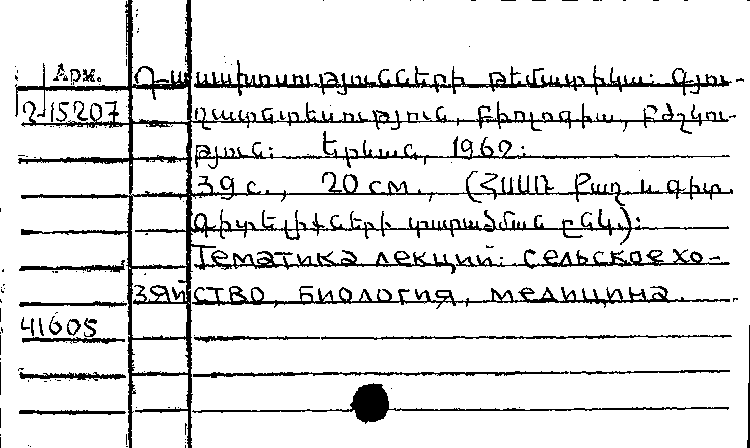 Арм. Դասախոսությունների թեմատիկա: Գյու-
2-15207 ղատնտեսություն, բիոլոգիա, բժշկու-
թյուն: Երևան, 1962:
39 с., 20 см., (ՀՍՍՌ քաղ. և գիտ.
գիտելիքների տարածման ընկ.):
Тематика лекций: сельское хо-
зяйство, биология, медицина.
41605